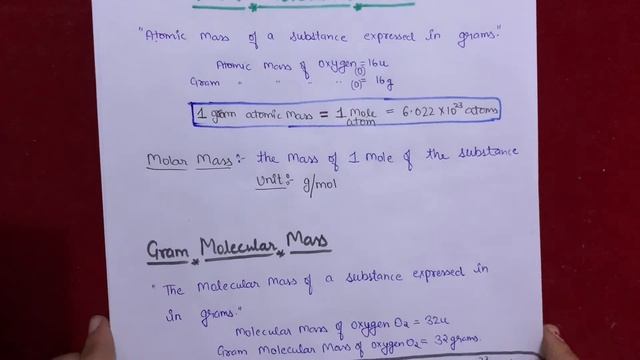 "Atomic Mass of a substance expressed in grams."
Atomic Mass of oxygen (O) = 16u
Gram " " " " (O) = 16g
1 gram atomic Mass = 1 Mole atom = 6.022 × 10²³ atoms
Molar Mass:- the Mass of 1 mole of the substance
Unit:- g/mol
Gram Molecular Mass
"The Molecular Mass of a substance expressed in
in grams."
Molecular Mass of oxygen O₂ = 32u
Gram Molecular Mass of oxygen O₂ = 32 grams.